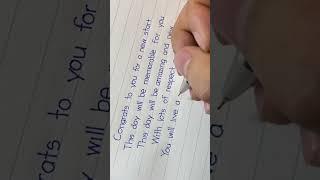 Congrats to you for a new start
This day will be memorable for you
This day will be amazing and new
With lots of respect
You will live a